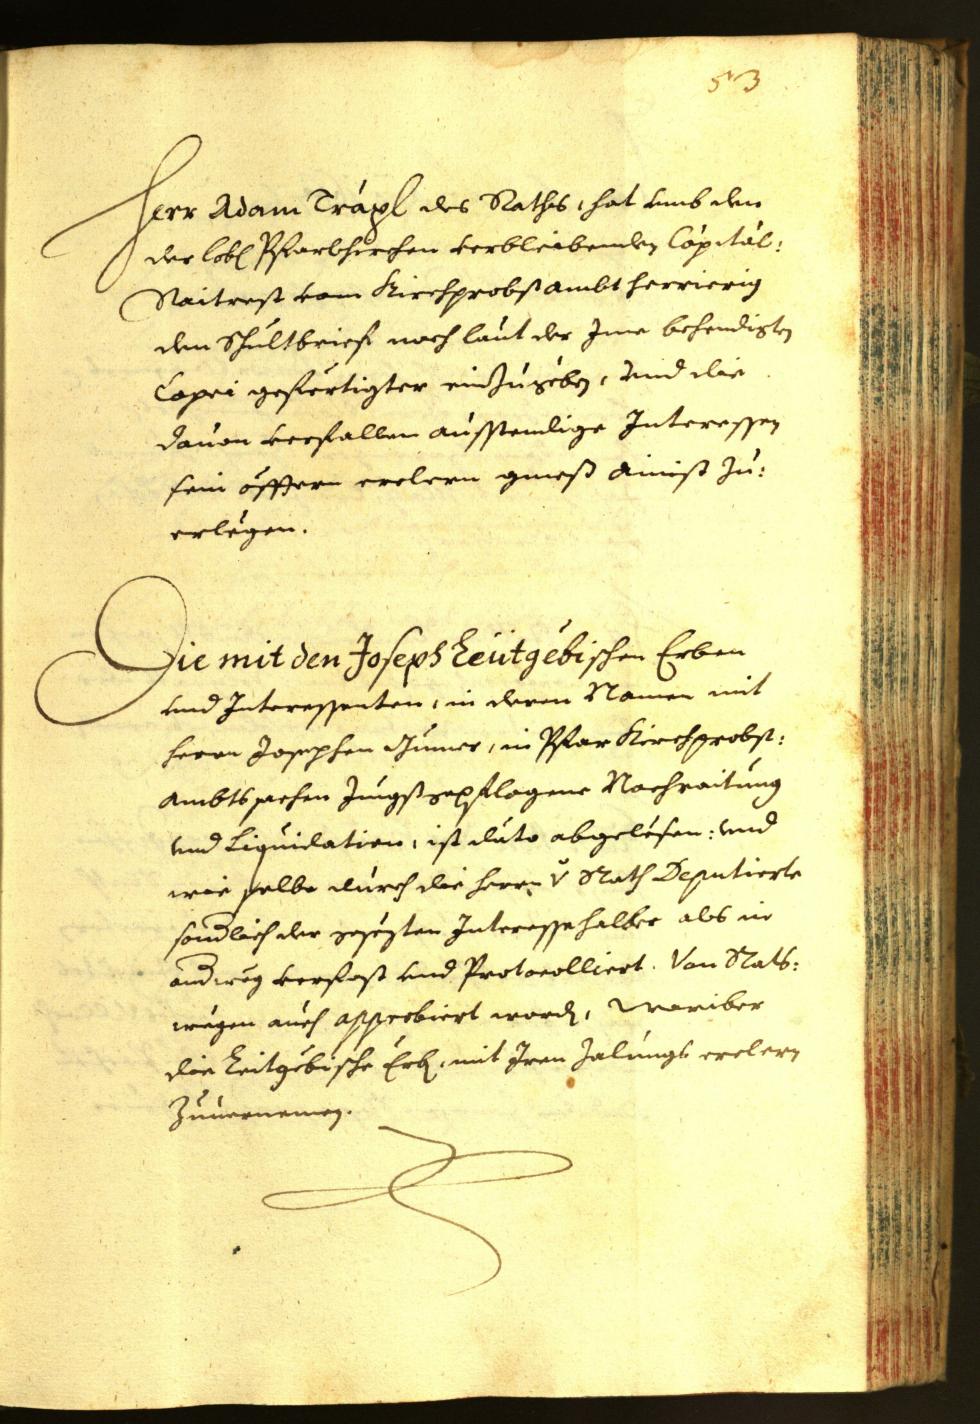 53
Herr Adam Träxl des Raths, hat umb den
der Lobl Pfarrkhirchen verbleibenden Capital:
Raitrest vom Kirchprobst ambt herrierig
den Schultbrief noch laut der Ime behendigten
Copei gefertigter einzugeben, Unnd die
dauon verfallen ausstendige Interessen
sein öfftern erclern gmeß ainist zu:
erlegen.
Die mit den Joseph Leütgebischen Erben
und Interessenten, in deren Namen mit
herrn Josephen in Pfar Kirchprobst:
Ambts sachen Jungst gepflogene Nachraitung
und Liquidation, ist dato abgelesen: und
wie selbe durch die herrn v Rath Deputierte
sondlich der gesezten Interesse halber als in
andweg verfast und Protocolliert. Von Rats:
wegen auch approbiert word, Worüber
die Leitgebische Erb, mit Iren Zalungs erclern
Zuuernemen.